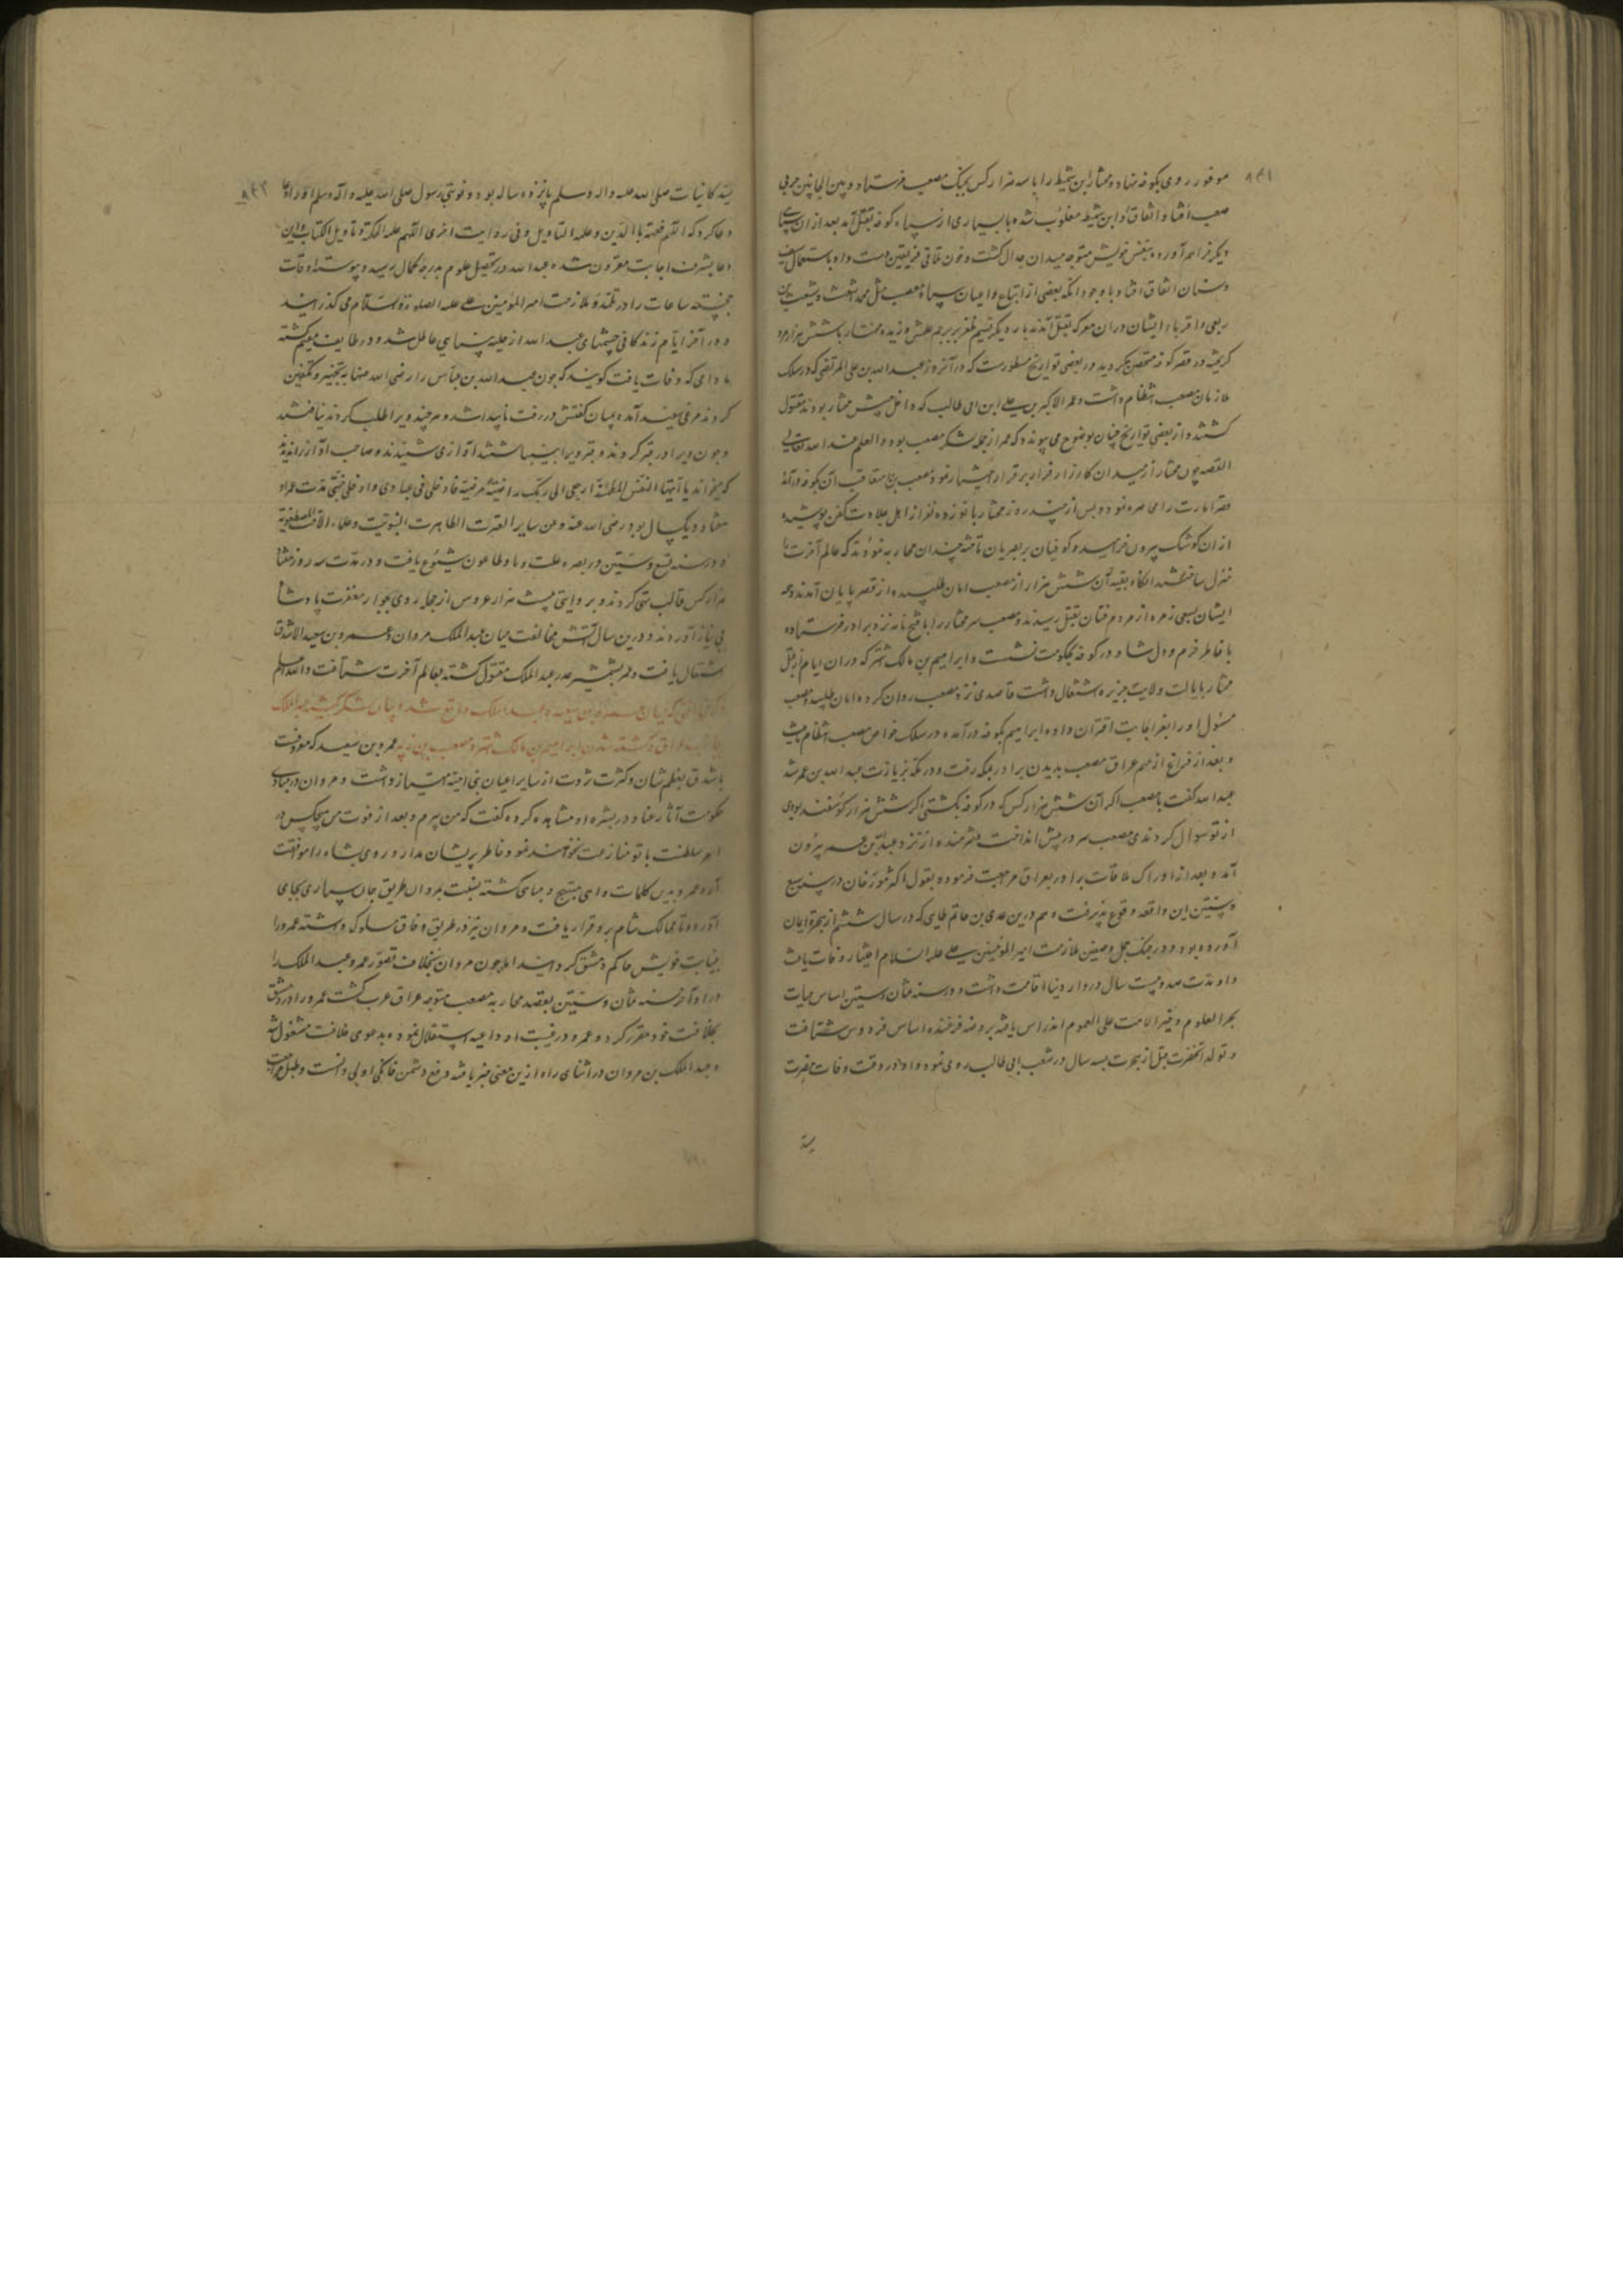 موفور روی بکوفه نهاد و مختار ابن شمیط را با سه هزار کس بجنگ مصعب فرستاد و بین الجانبین حربی
صعب افتاد و اتفاقا ابن شمیط مغلوب شده با بسیاری از سپاه کوفه بقتل آمد بعد از ان سپاهی
دیگر فراهم آورده بنفس خویش متوجه میدان جدال کشت و چون تلاقی فریقین دست داد باستعمال سیف
و سنان اتفاق افتاد و با وجود انکه بعضی از اتباع و اعیان سپاه مصعب مثل محمد اشعث و شبث بن
ربعی و اقرباء ایشان دران معرکه بقتل آمدند بار دیکر نسیم ظفر بر پرچم علمش وزید و مختار با شش هزار مرد
کریخته در قصر کوفه متحصن کردید و در بعضی تواریخ مسطورست که در آنروز عبد الله بن علی المرتضی که در سلک
ملازمان مصعب انتظام داشت و عمر الاکبر بن علی ابن ابی طالب که داخل جیش مختار بودند مقتول
کشتند و از بعضی تواریخ چنان بوضوح می پیوندد که عمر از جمله لشکر مصعب بود و العلم عند الله تعالی
القصه چون مختار از میدان کارزار فرار بر قرار اختیار نمود مصعب بن متعاقب آن بکوفه در آمد
قصر امارت را محاصره نمود و پس از چند روز مختار با نوزده نفر از اهل جلادت کفن پوشیده
از ان کوشک بیرون خرامید و کوفیان بر بصریان تاخته چندان محاربه نمودند که عالم آخرت را
منزل ساختند انکاه بقیه آن شش هزار از مصعب امان طلبیده از قصر پایان آمدند و همه
ایشان بسعی زمره از مردم فتان بقتل رسیدند و مصعب سر مختار را با فتح نامه نزد برادر فرستاده
با خاطر خرم و دل شاد در کوفه بحکومت نشست و ابراهیم بن مالک اشتر که دران ایام از قبل
مختار بایالت ولایت جزیره اشتغال داشت قاصدی نزد مصعب روان کرده امان طلبید و مصعب
مسئول او را بعز اجابت اقتران داده ابراهیم بکوفه در آمده در سلک خواص مصعب انتظام یافت
و بعد از فراغ از مهم عراق مصعب بدیدن برادر بمکه رفت و در مکه بزیارت عبد الله بن عمر شد
عبد الله کفت یا مصعب اکر آن شش هزار کس که در کوفه بکشتی اکر شش هزار کوسفند بودی
از تو سوال کردندی مصعب سر در پیش انداخت و شرمنده از نزد عبد الله بن عمر بیرون
آمد و بعد از ادراک ملاقات برادر بعراق مراجعت فرموده بقول اکثر مورخان در سنه سبع
و ستین این واقعه وقوع پذیرفت و هم درین عدی بن حاتم طایی که در سال ششم از هجره ایمان
آورده بود و در جنک جمل و صفین ملازمت امیر المومنین علی علیه السلام اختیار وفات یافت
و او مدت صد و بیست سال در دار دنیا اقامت داشت و در سنه ثمان و ستین اساس حیات
بحر العلوم و خیر الامت علی العموم اندراس یافته بروضه فرخنده اساس فردوس شتافت
و تولد انحضرت قبل از هجرت بسه سال در شعب ابی طالب روی نمود و او در وقت وفات حضرت
سید
سید کاینات صلی الله علیه و اله و سلم پانزده ساله بود و نوبتی رسول صلی الله علیه و آله وسلم او را
دعا کرد که اللهم فقهه بالدین و علمه التاویل و فی روایت اخری اللهم علمه الحکمة و تاویل الکتاب و این
دعا بشرف اجابت مقرون شده عبد الله در تحصیل علوم بدرجه کمال رسید و پیوسته اوقات
خجسته ساعات را در تلمذ و ملازمت امیر المؤمنین علی علیه الصلوة و السلام می کذرانید
و در آخر ایام زندکانی چشمهای عبد الله از حلیه بینایی عاطل شد و در طایف مقیم کشته
مادامی که وفات یافت کویند که چون عبد الله بن عباس را رضی الله عنهما به تجهیز و تکفین
کردند مرغی سفید آمده بمیان کفنش در رفت ناپیدا شد و هر چند ویرا طلب کردند نیافتند
و چون ویرا در قبر کردند و قبر ویرا انباشتند آوازی شنیدند و صاحب آواز را ندیدند
که میخواند یا ایتها النفس المطمئنة ارجعی الی ربک راضیة مرضیة فادخلی فی عبادی و ادخلی جنتی مدت عمر او
هفتاد و یکسال بود رضی الله عنه و عن سایر العترت الطاهرت النبویت و علماء الامت المصطفویة
و در سنه تسع و ستین در بصره علت وبا و طاعون شیوع یافت و در مدت سه روز هفتاد
هزار کس قالب تهی کردند و بروایتی بیست هزار عروس از حجله روی بجوار مغفرت پادشاه
بی نیاز آوردند و درین سال آتش مخالفت میان عبد الملک مروان و عمرو بن سعید الاشدق
اشتعال یافت و عمر بشمشیر غدر عبد الملک مقتول کشته بعالم آخرت شتافت و الله اعلم
که میان عمرو بن سعید و عبد الملک واقع شده و بیان لشکر کشیدن عبد الملک
بجانب عراق و کشته شدن ابراهیم بن مالک اشتر و مصعب بن زبیر عمرو بن سعید که معروفست
باشدق بعظم شان و کثرت ثروت از سایر اعیان بنی امیه امتیاز داشت و مروان در مبادی
حکومت آثار عناد در بشره او مشاهده کرده کفت که من پیرم و بعد از فوت من هیچکس در
امر سلطنت با تو منازعت نخواهد نمود خاطر پریشان مدار و روی براه موافقت
آر عمرو بدین کلمات واهی مبتهج و مباهی کشته بنسبت مروان طریق جان سپاری بجای
آورده تا ممالک شام برو قرار یافت و مروان نیز در طریق وفاق سلوک داشته عمرو را
بنیابت خویش حاکم دمشق کردانید اما چون مروان بخلاف تصور عمرو عبد الملک را
در اواخر سنه ثمان و ستین بقصد محاربه مصعب متوجه عراق عرب کشت عمرو را در دمشق
بخلافت خود مقرر کرد و عمرو در غیبت او داعیه استقلال نموده بدعوی خلافت مشغول شد
و عبد الملک بن مروان در اثنای راه ازین معنی خبر یافته دفع دشمن خانکی اولی دانست و طبل مراجعت